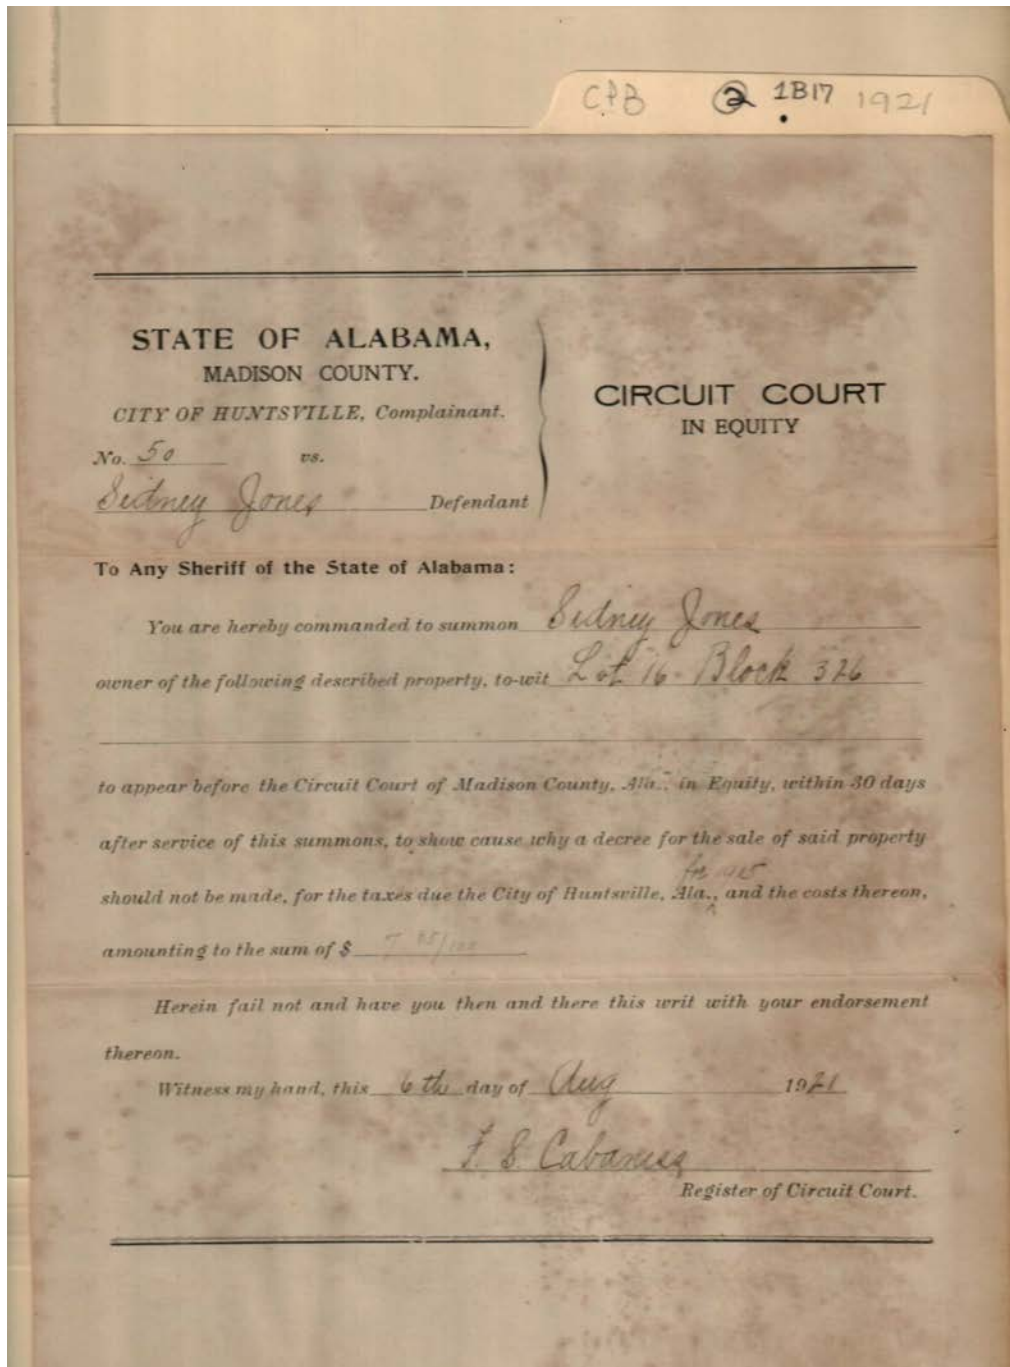 CPB ② 1B17 1921
STATE OF ALABAMA,
MADISON COUNTY.
CITY OF HUNTSVILLE, Complainant.
No. 50 vs.
Sidney Jones Defendant
CIRCUIT COURT
IN EQUITY
To Any Sheriff of the State of Alabama:
You are hereby commanded to summon Sidney Jones
owner of the following described property, to-wit Lot 16 - Block 326
to appear before the Circuit Court of Madison County, Ala., in Equity, within 30 days
after service of this summons, to show cause why a decree for the sale of said property
for
should not be made, for the taxes due the City of Huntsville, Ala., and the costs thereon,
amounting to the sum of $
Herein fail not and have you then and there this writ with your endorsement
thereon.
Witness my hand, this 6th day of Aug 1921
F. S. Cabaniss
Register of Circuit Court.